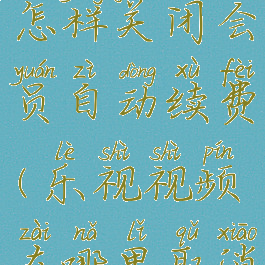 怎样关闭会
yuán zì dòng xù fèi
员自动续费
lè shì shì pín
(乐视视频
zài nǎ lǐ qǔ xiāo
在哪里取消